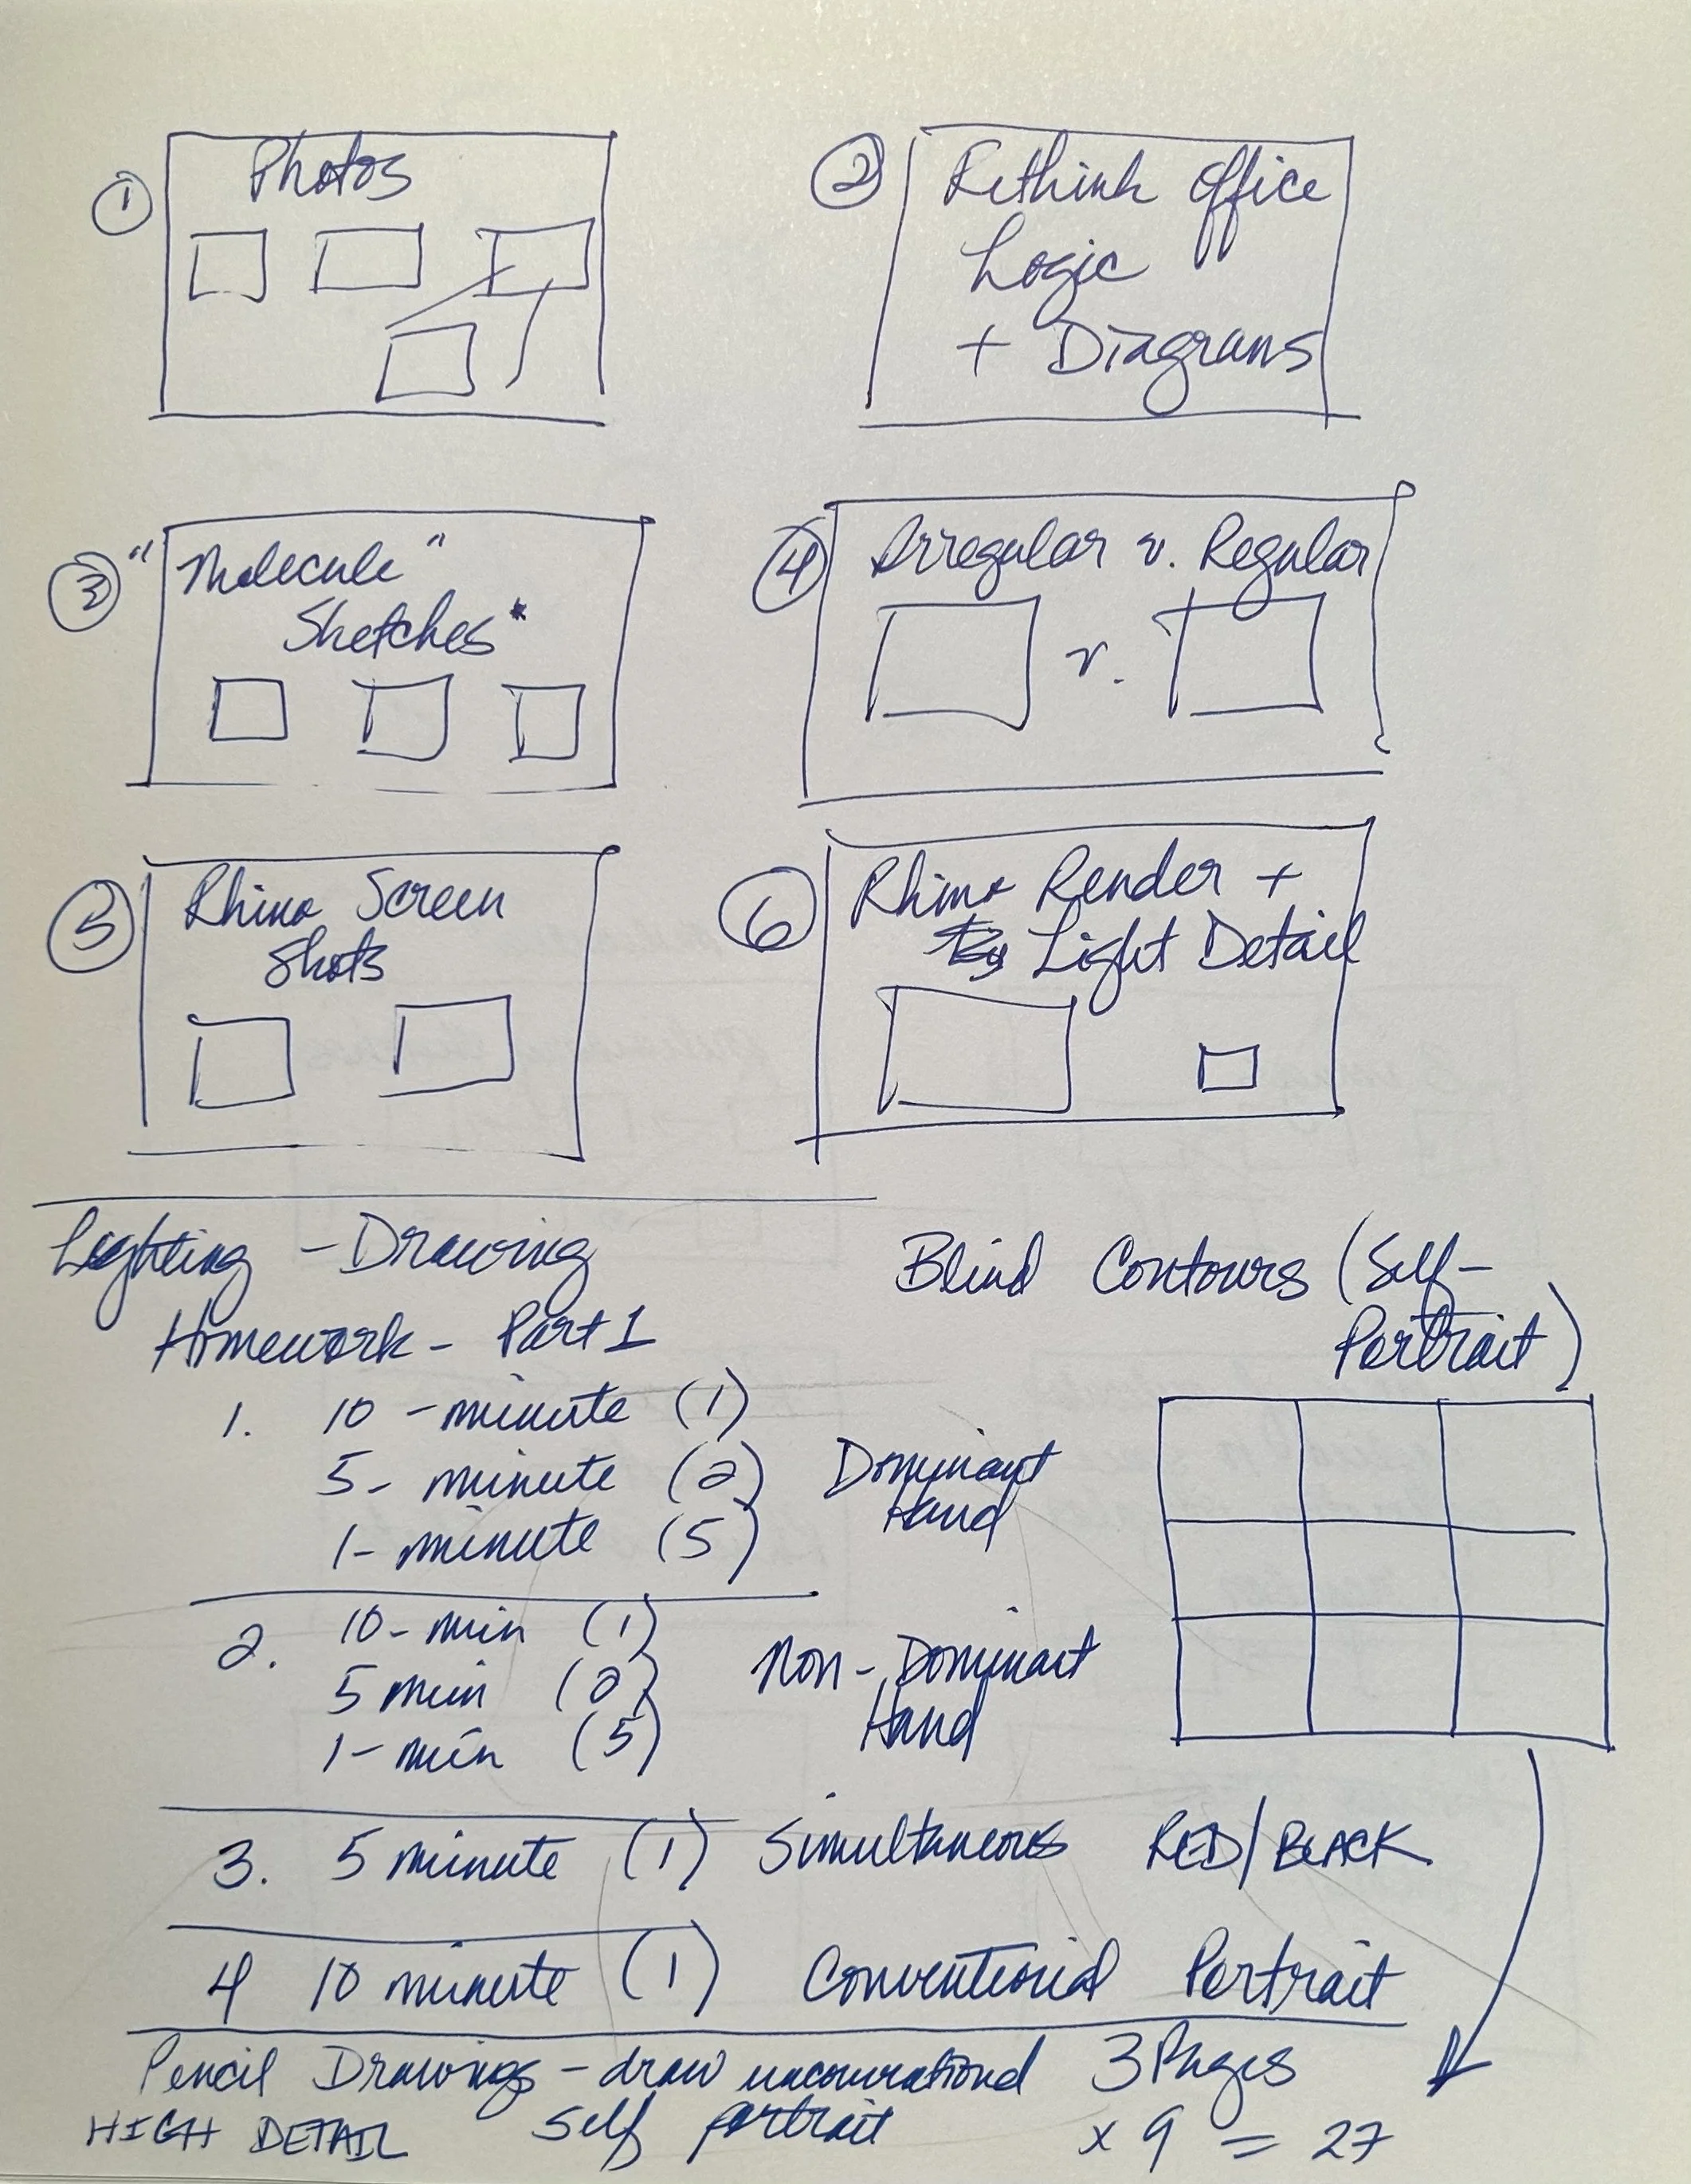 1
Photos
2
Rethink Office
Logic
+ Diagrams
3
"Molecule"
Sketches*
4
Irregular v. Regular
v.
5
Rhino Screen
Shots
6
Rhino Render +
Light Detail
Lighting - Drawing
Homework - Part 1
Blind Contours (Self-
Portrait)
1. 10 - minute (1)
5 - minute (2) Dominant
1 - minute (5) Hand
2. 10 - min (1)
5 min (2) Non - Dominant
1 - min (5) Hand
3. 5 minute (1) Simultaneous RED/BLACK
4 10 minute (1) Conventional Portrait
Pencil Drawings - draw 3 Pages
HIGH DETAIL self portrait x 9 = 27